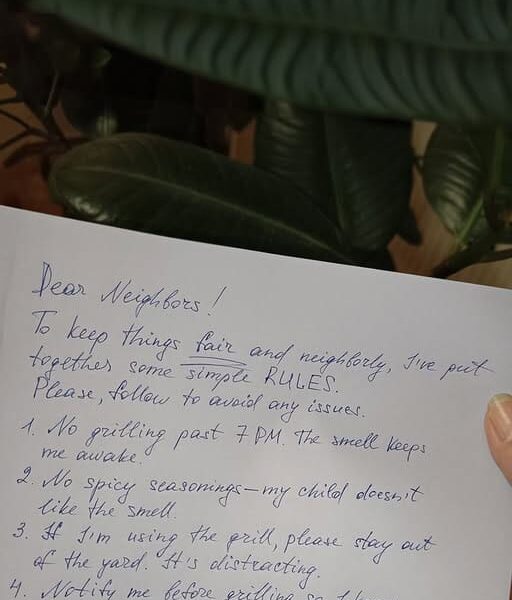 Dear Neighbors!
To keep things fair and neighborly, I've put
together some simple RULES.
Please, follow to avoid any issues.
1. No grilling past 7 PM. The smell keeps
me awake.
2. No spicy seasonings—my child doesn't
like the smell.
3. If I'm using the grill, please stay out
of the yard. It's distracting.
4. Notify me before grilling so I